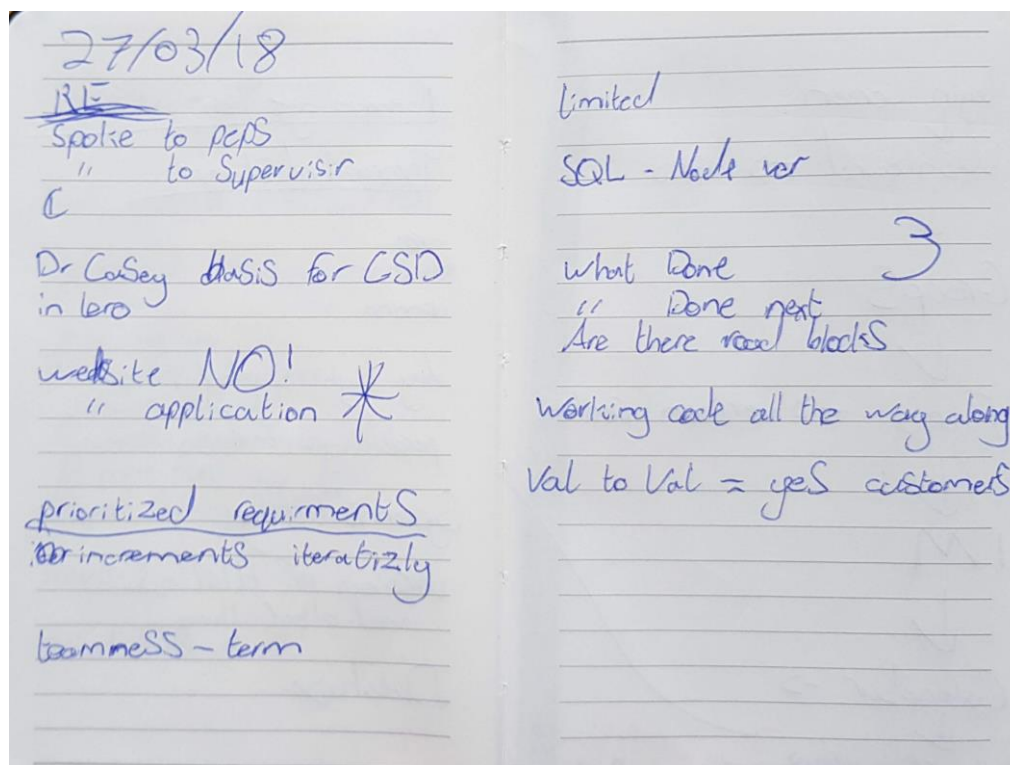 27/03/18
RE
Spoke to peps
" to Supervisir
C
Dr Casey basis for CSD
in lero
website NO!
" application *
prioritized requirments
increments iteratizly
teammeSS - term
limited
SQL - Node ver
what Done 3
" Done next
Are there road blocks
Working code all the way along
Val to Val = yes customers